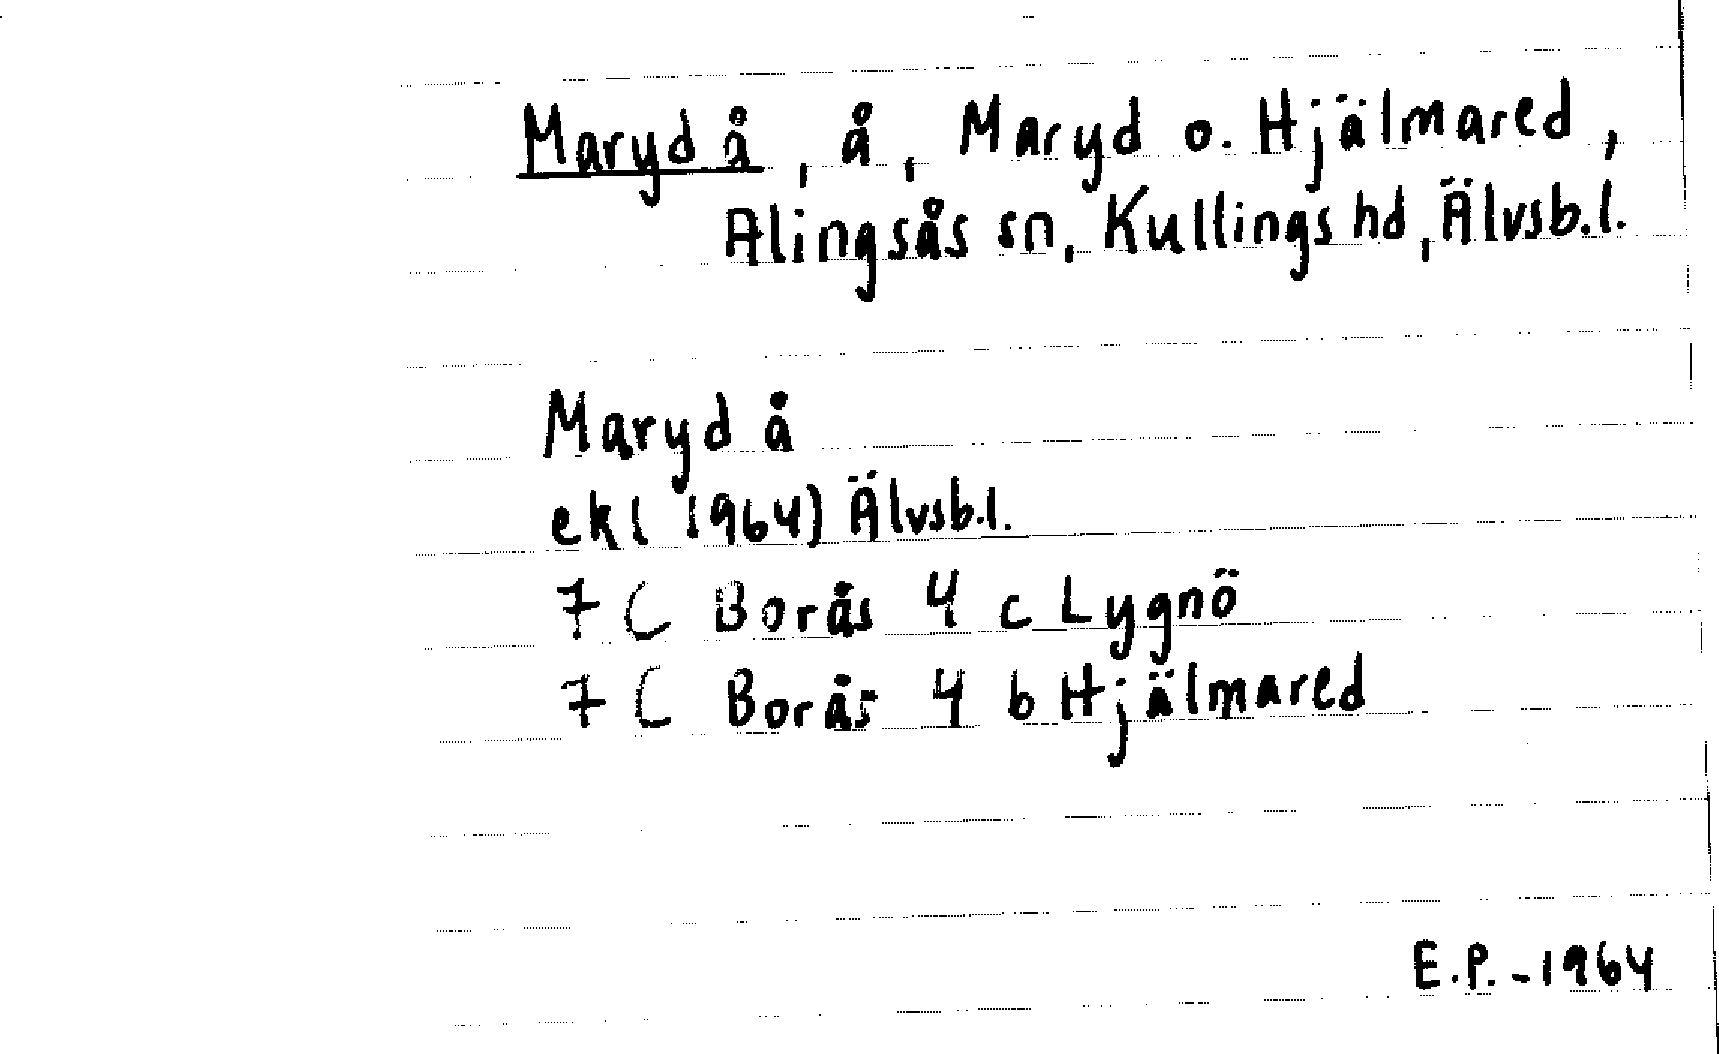 Maryd å, å, Maryd o. Hjälmared,
Alingsås sn, Kullings hd, Älvsb.l.
Maryd å
ek( 1964) Älvsb.l.
7 C Borås 4 c Lygnö
7 C Borås 4 b Hjälmared
E.P. - 1964